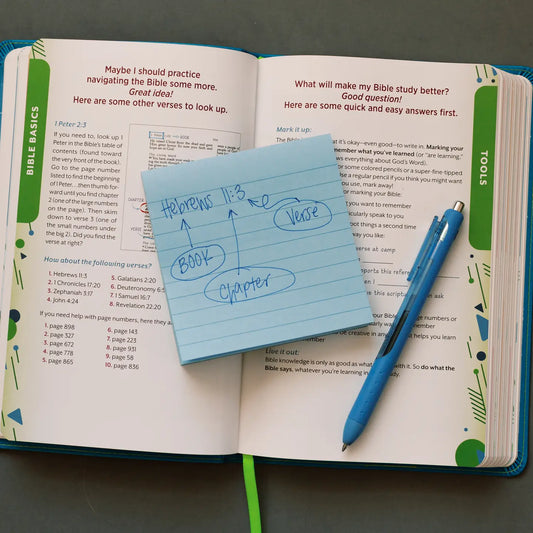 BIBLE BASICS
Maybe I should practice
navigating the Bible some more.
Great idea!
Here are some other verses to look up.
1 Peter 2:3
If you need to, look up 1
Peter in the Bible's table of
contents (found toward
the very front of the book).
Go to the page number
listed to find the beginning
of 1 Peter. ...then thumb for-
ward until you find chapter
2 (one of the large numbers
on the page). Then skim
down to verse 3 (one of
the small numbers under
the big 2). Did you find the
verse at right?
How about the following verses?
1. Hebrews 11:3
2. 1 Chronicles 17:20
3. Zephaniah 3:17
4. John 4:24
5. Galatians 2:20
6. Deuteronomy 6:5
7. 1 Samuel 16:7
8. Revelation 22:20
If you need help with page numbers, here they a
1. page 898
2. page 327
3. page 672
4. page 778
5. page 865
6. page 143
7. page 223
8. page 931
9. page 58
10. page 836
Hebrews 11:3
BOOK
Chapter
Verse
What will make my Bible study better?
Good question!
Here are some quick and easy answers first.
Mark it up:
The Bible
at it's okay—even good—to write in. Marking your
member what you've learned (or "are learning,"
ws everything about God's Word).
or some colored pencils or a super-fine-tipped
se a regular pencil if you think you might want
use, mark away!
or marking your Bible:
you want to remember
icularly speak to you
pot things a second time
way you like:
verse at camp
ports this
this
ask
your Bible
numbers or
remember
be creative in
helps you learn
Live it out:
Bible knowledge is only as good as what
with it. So do what the
Bible says, whatever you're learning in
dy.
TOOLS